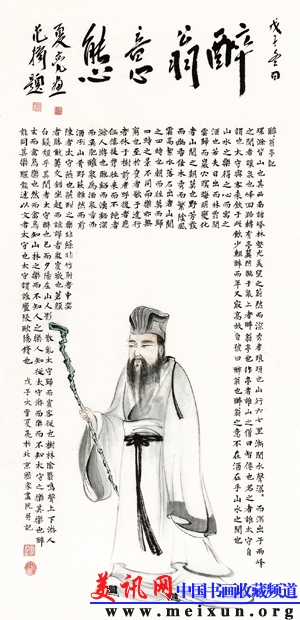 醉翁意態
醉翁亭記
環滁皆山也其西南諸峰林壑尤美望之蔚然而深秀者瑯琊也山行六七里漸聞水聲潺潺而瀉出于兩峰
之間者釀泉也峰回路轉有亭翼然臨于泉上者醉翁亭也作亭者誰山之僧曰智僊也名之者誰太守自
謂也太守與客來飲于此飲少輒醉而年又最高故自號曰醉翁也醉翁之意不在酒在乎山水之間也
山水之樂得之心而寓之
酒也若夫日出而林霏開
雲歸而巖穴暝晦明變化
者山間之朝暮也野芳發
而幽香佳木秀而繁陰風
霜高潔水落而石出者山間
之四時也朝而往暮而歸
四時之景不同而樂亦無
窮也至於負者歌于途行
者休于樹前者呼後者應
傴僂提攜往來而不絕者
滁人遊也臨溪而漁溪深
而魚肥釀泉為酒泉香而
酒洌山肴野蔌雜然而前
陳者太守宴也宴酣之樂非絲非竹射者中弈
者勝觥籌交錯起坐而諠譁者眾賓懽也蒼顏
白髮頹乎其間者太守醉也已而夕陽在山人影散亂太守歸而賓客從也樹林陰翳鳴聲上下遊人
去而禽鳥樂也然而禽鳥知山林之樂而不知人之樂人知從太守遊而樂而不知太守之樂其樂也醉
能同其樂醒能述以文者太守也太守謂誰廬陵歐陽修也
北京國家畫院並記
美讯网 中国书画收藏频道
www.meixun.org